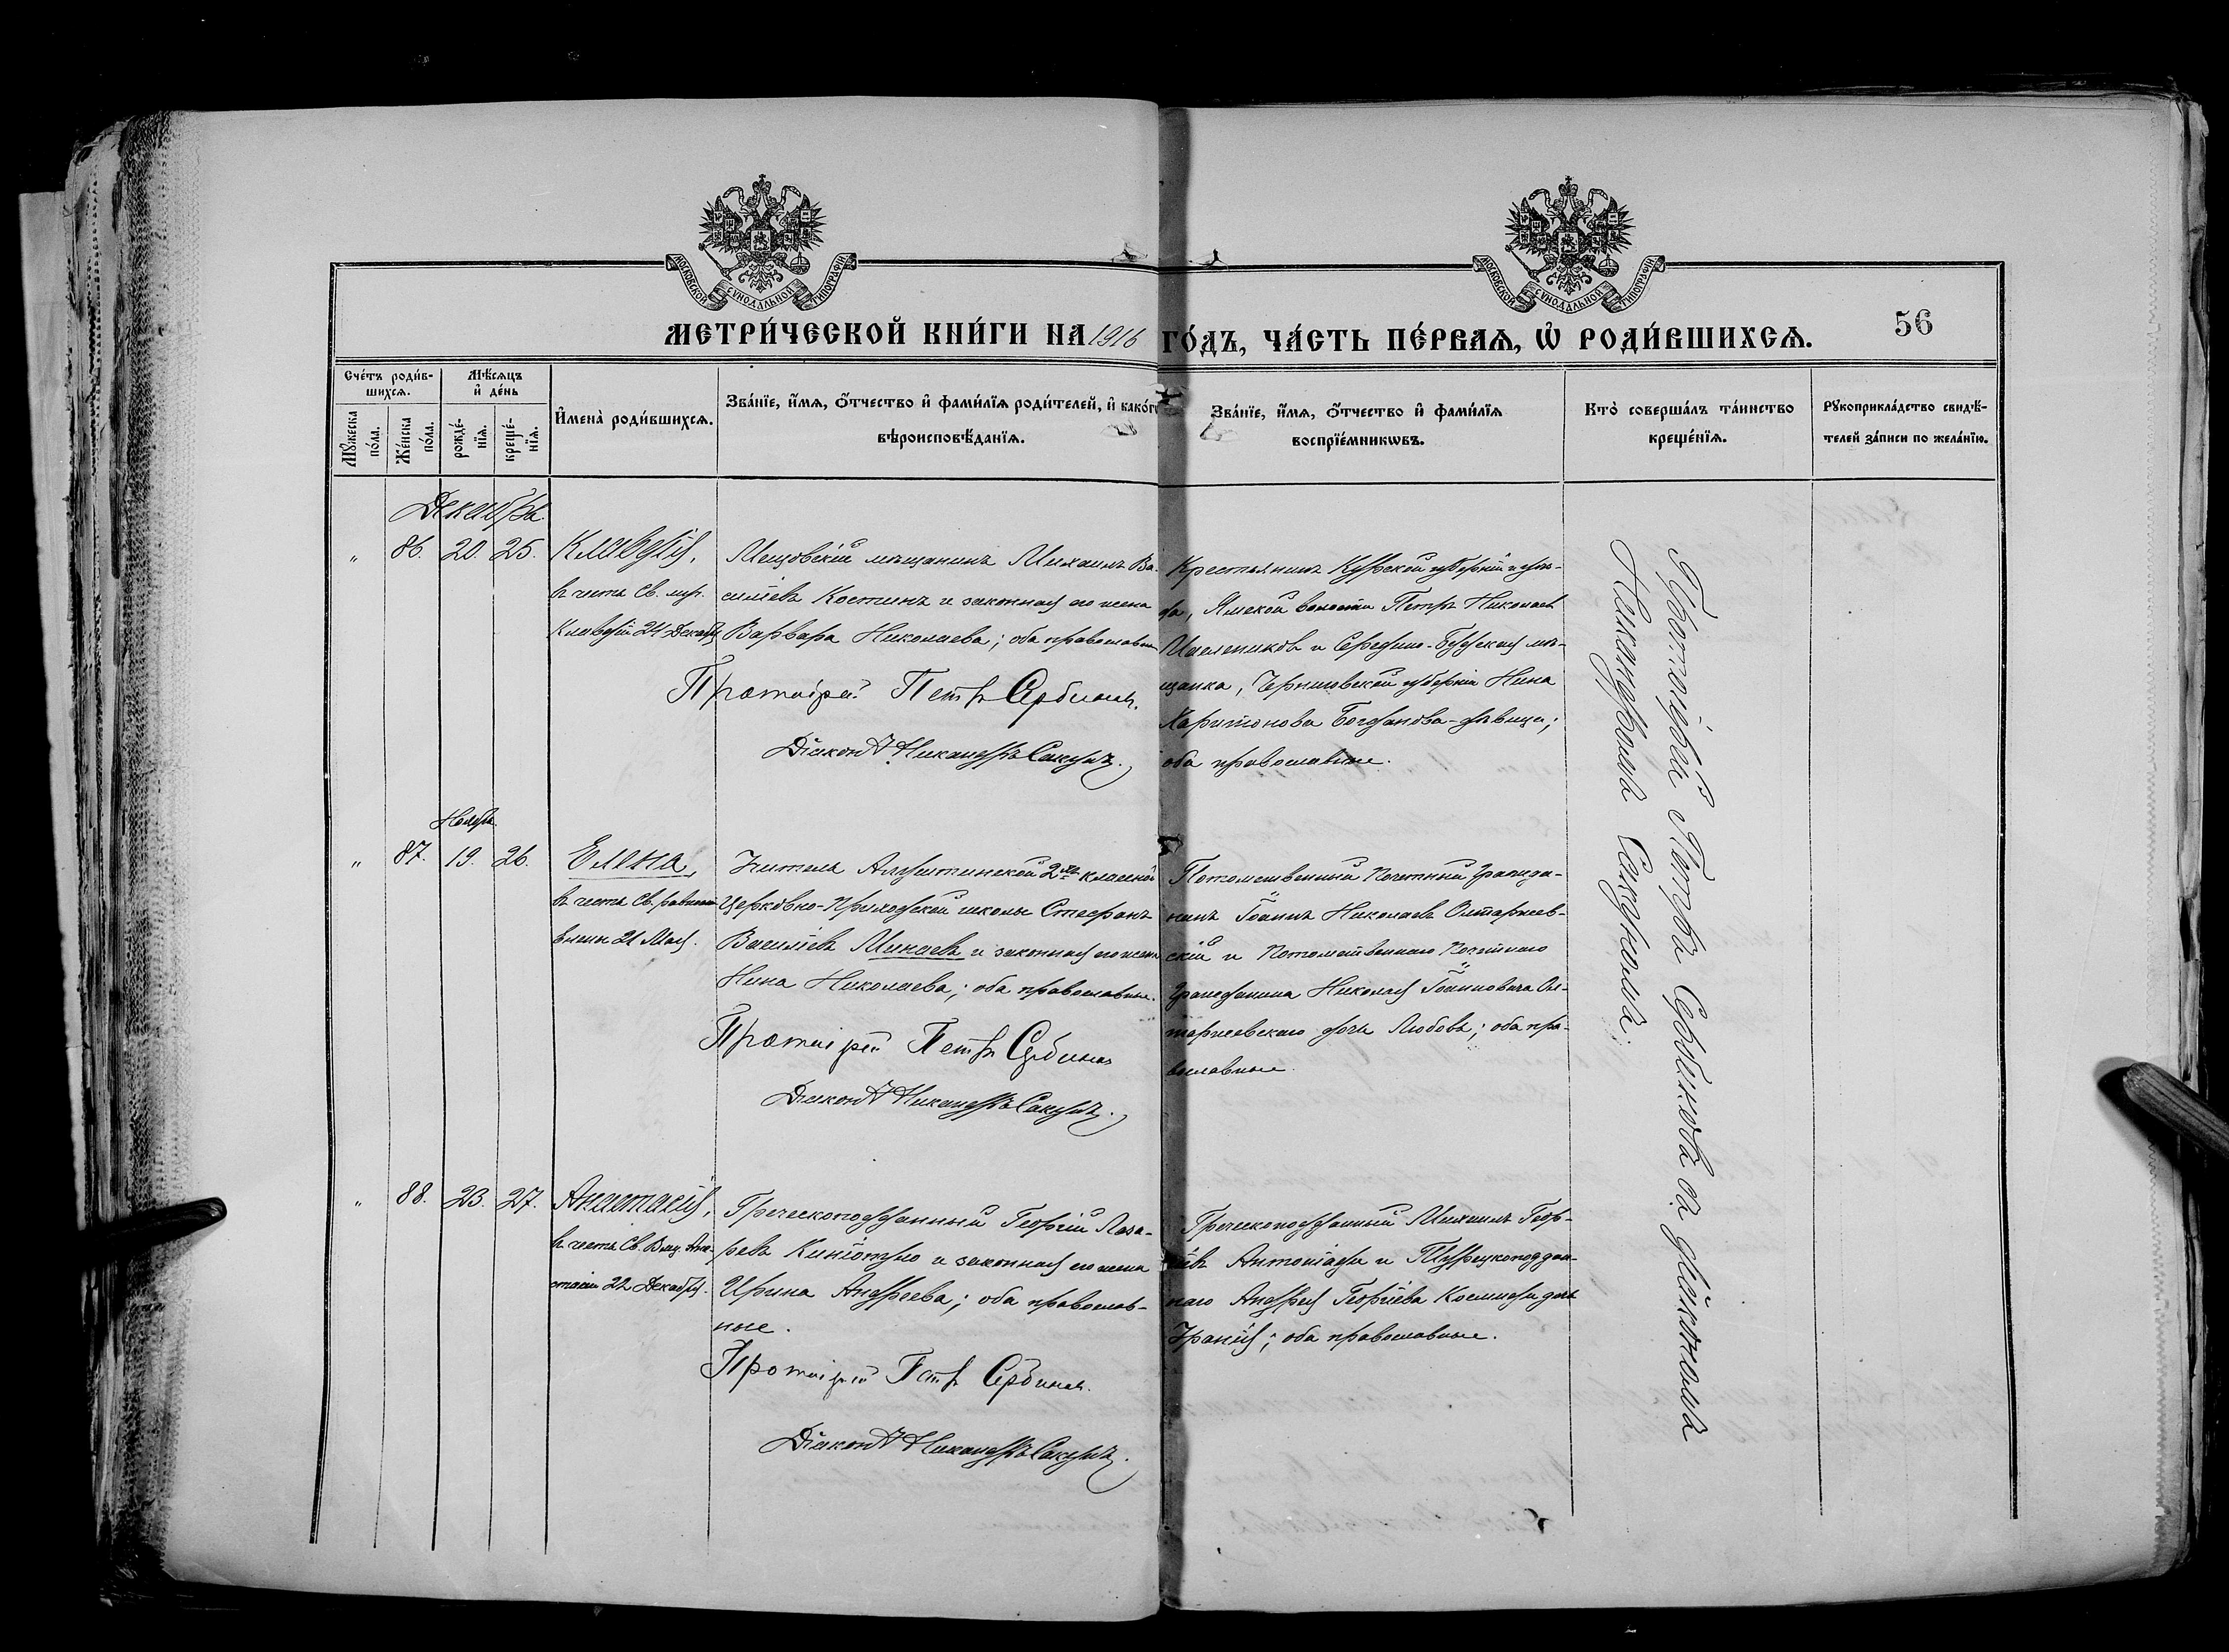 МОСКОВСКОЙ СѴНОДАЛЬНОЙ ТИПОГРАФІИ
МОСКОВСКОЙ СѴНОДАЛЬНОЙ ТИПОГРАФІИ
МЕТРИ́ЧЕСКОЙ КНИ́ГИ НА 1916 ГО́ДЪ, ЧА́СТЬ ПЕ́РВАѦ, Ѡ҆ РОДИ́ВШИХСѦ.
56
Сче́тъ роди́в-
шихсѧ.
Мꙋ́жеска по́ла.
Же́нска по́ла.
Мѣ́сѧцъ
и҆ де́нь
рожде́-
нїѧ.
креще́-
нїѧ.
И҆мена̀ роди́вшихсѧ.
Зва́нїе, и҆́мѧ, ѻ҆́тчество и҆ фами́лїѧ роди́телей, и҆ како́гѡ
вѣроисповѣ́данїѧ.
Зва́нїе, и҆́мѧ, ѻ҆́тчество и҆ фами́лїѧ
воспрїе́мникѡвъ.
Кто̀ соверша́лъ та́инство
креще́нїѧ.
Рꙋкоприкла́дство свидѣ́-
телей за́писи по жела́нїю.
Декабрь.
" 86. 20. 25. Клавдія,
въ честь Св. муч.
Клавдіи 24 Декабря
Мещовскій мѣщанинъ Михаилъ Ва-
силіевъ Костинъ и законная его жена
Варвара Николаева; оба православные
Протоіерей Петръ Сербиновъ.
Діаконъ Никандръ Сакунъ.
Крестьянинъ Курской губерніи и уѣз-
да, Ямской волости Петръ Николаевъ
и Середино-Будская мѣ-
щанка, Черниговской губерніи Нина
Харитонова Богданова-дѣвица;
оба православные.
Ноябрь.
" 87. 19. 26. Елена,
въ честь Св. равноап.
Елены 21 Мая.
Учитель 2хъ классной
Церковно-Приходской школы Стефанъ
Василіевъ Минаевъ и законная его жена
Нина Николаева; оба православные.
Протоіерей Петръ Сербиновъ
Діаконъ Никандръ Сакунъ.
Потомственный Почетный Гражда-
нинъ Іоаннъ Николаевъ Олтаржев-
скій и Потомственнаго Почетнаго
Гражданина Николая Іоанновича Ол-
таржевскаго дочь Любовь; оба пра-
вославные.
" 88. 23. 27. Анастасія,
въ честь Св. Влмц. Ана-
стасіи 22 Декабря.
Греческоподданный Георгій Лаза-
ревъ и законная его жена
Ирина Андреева; оба православ-
ные.
Протоіерей Петръ Сербиновъ.
Діаконъ Никандръ Сакунъ.
Греческоподданный Михаилъ Геор-
гіевъ Антоніади и Турецкоподдан-
наго Андрея Георгіева Космиди дочь
Уранія; оба православные.
Протоіерей Петръ Сербиновъ съ діакономъ
Никандромъ Сакуномъ.